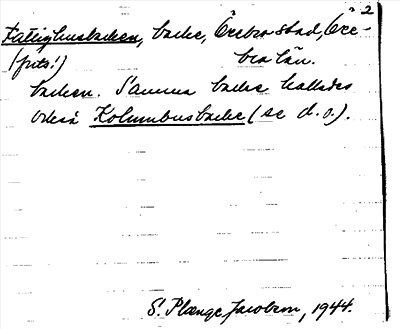 2
Fattighusbacken, backe, Örebro stad, Öre-
(prts!) bro län.
backen. Samma backe kallades
också Kolumbusbacke (se d. o.).
S. Plænge Jacobson, 1944.